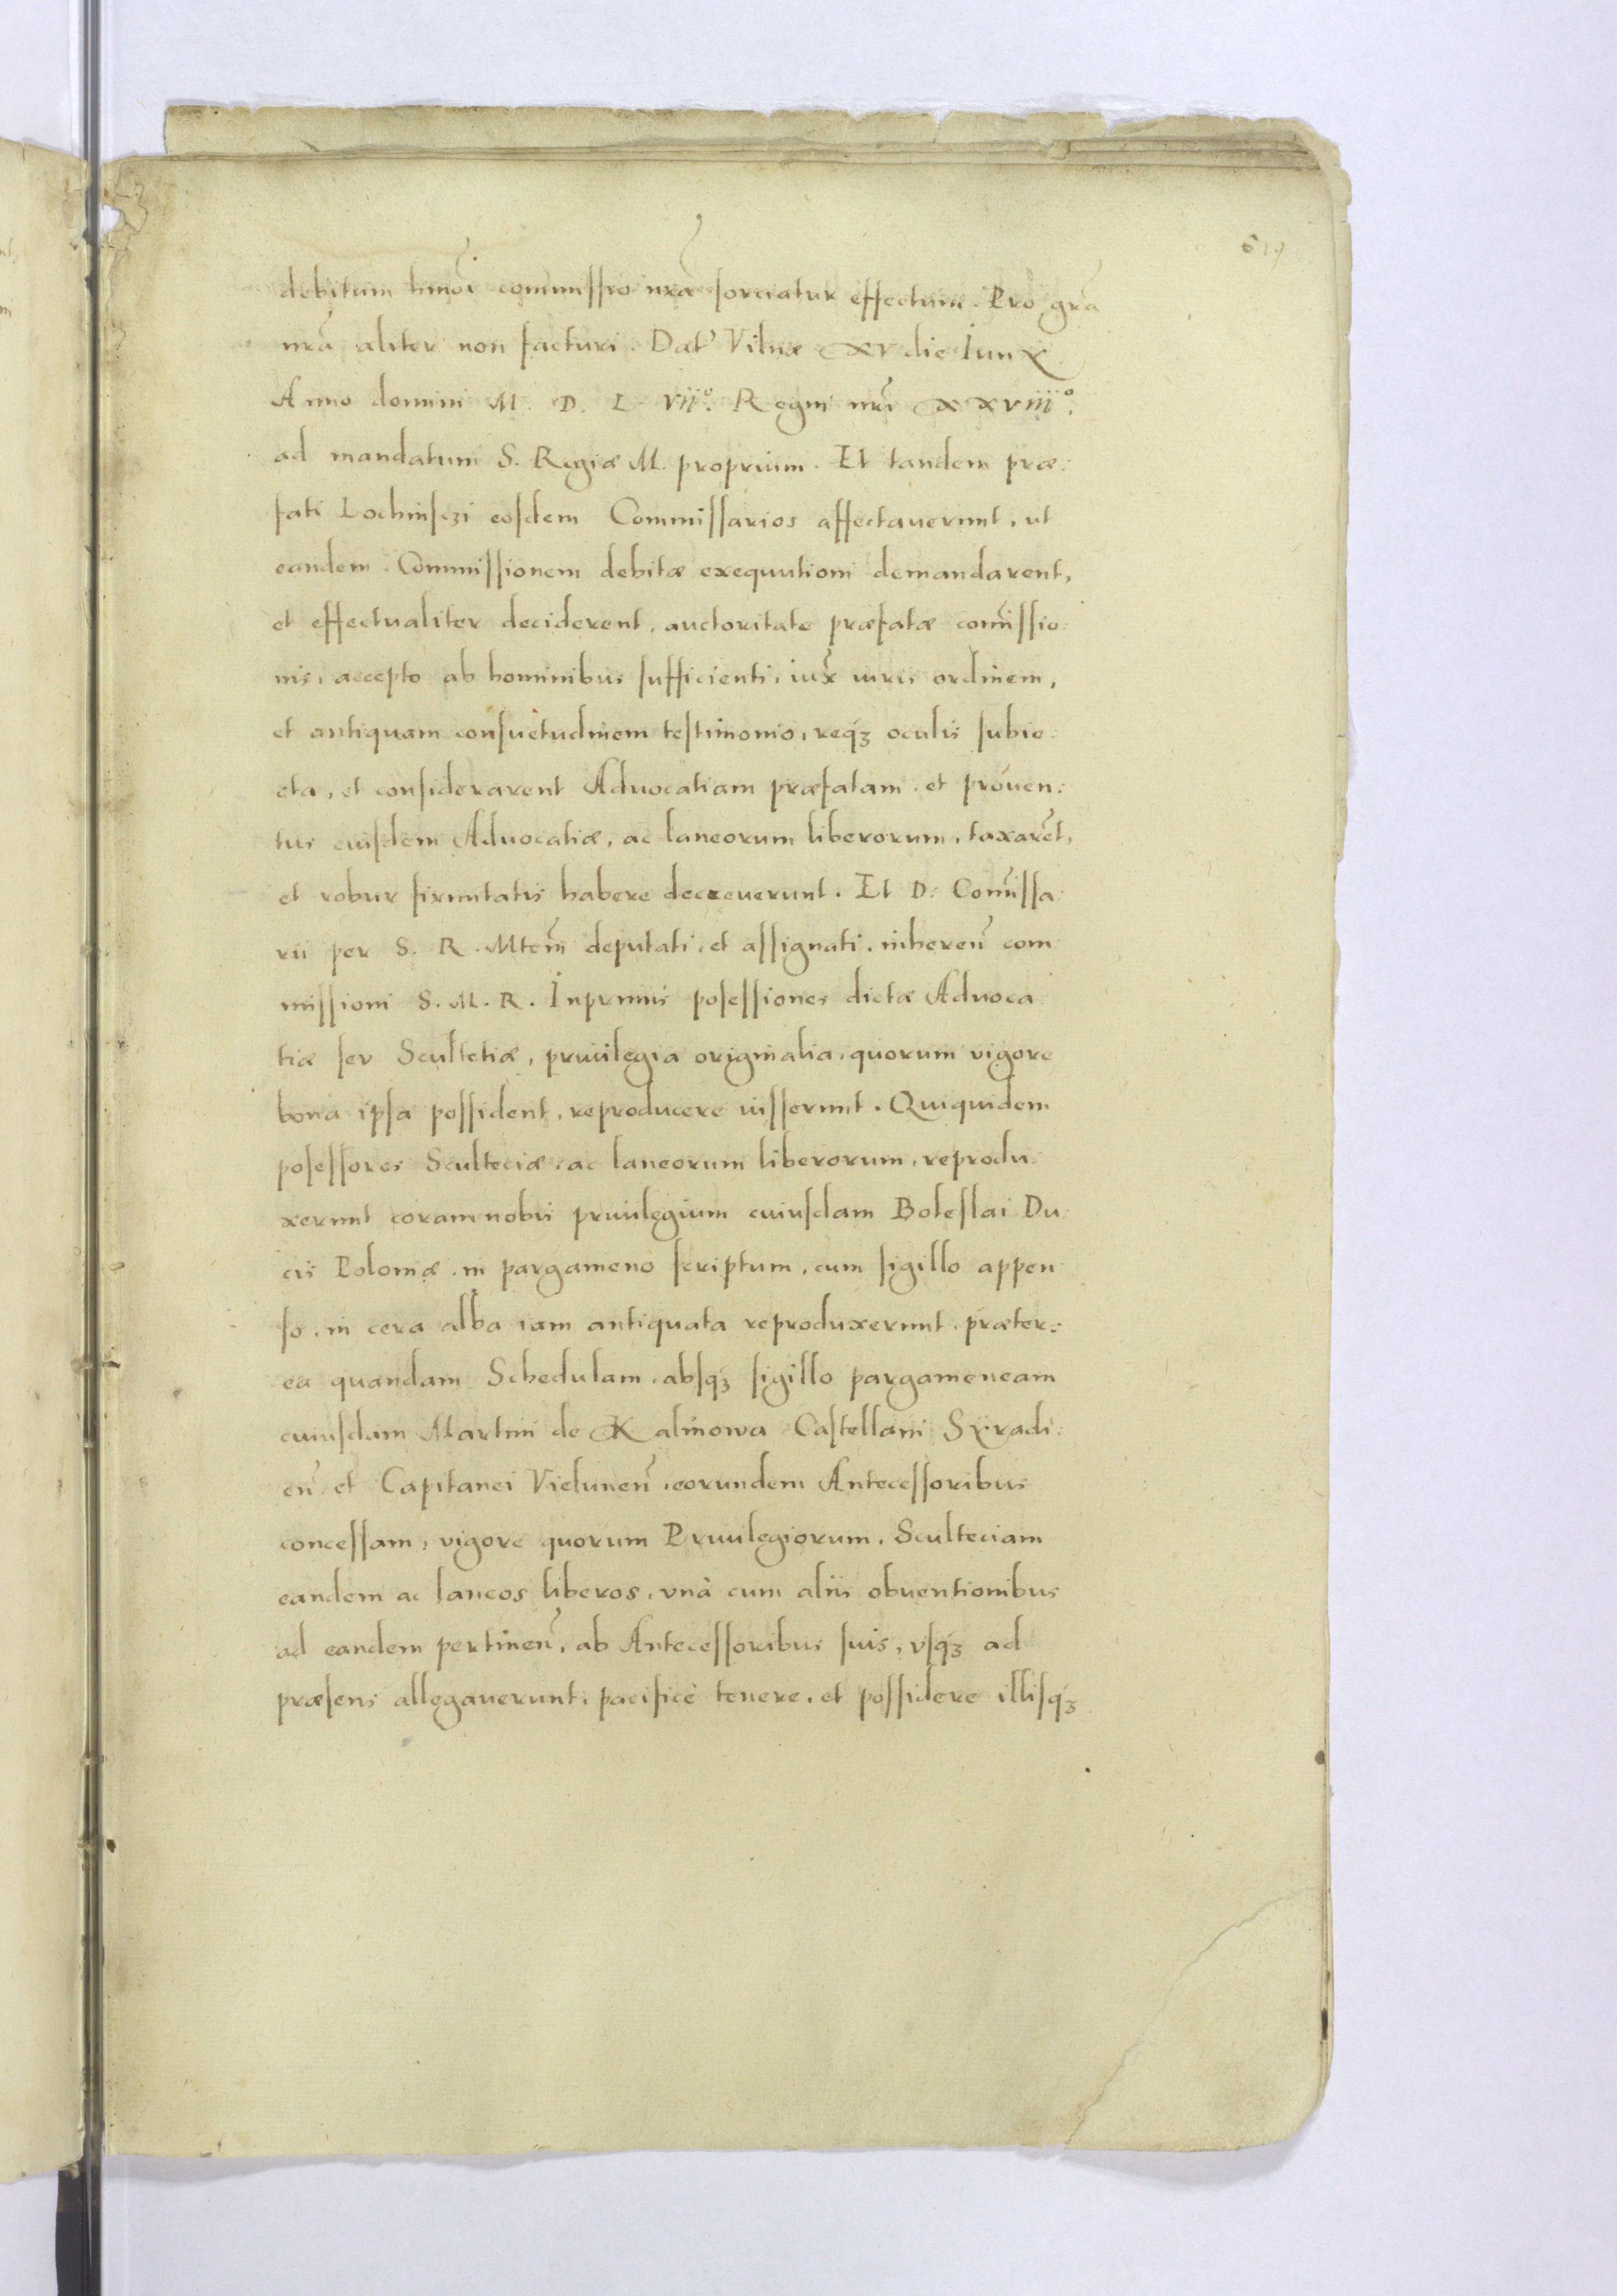 619
debitum hmoi commissio nrã sorciatur effectum. Pro grã
nrã aliter non facturi. Dat' Vilnæ XV die Iunÿ
Anno domini M. D. L. VII°. Regni nrĩ XXVIII°.
ad mandatum S. Regiæ M. proprium. Et tandem præ:
fati Lochinsczi eosdem Commissarios affectauerunt, ut
eandem Commissionem debitæ exequutioni demandarent,
et effectualiter deciderent, auctoritate præfatæ com̃issio:
nis, accepto ab hominibus sufficienti, iux̃ iuris ordinem,
et antiquam consuetudinem testimonio, reqꝫ oculis subie:
cta, et considerarent Aduocatiam præfatam, et prouen:
tus eiusdem Aduocatiæ, ac laneorum liberorum, taxarẽt,
et robur firmitatis habere decreuerunt. Et D. Com̃issa:
rii per S. R. Mtem̃ deputati, et assignati, inheren̄ com
missioni S. M. R. Inprimis posessiones dictæ Aduoca
tiæ seu Scultetiæ, priuilegia originalia, quorum vigore
bona ipsa possident, reproducere iusserunt. Quiquidem
posessores Sculteciæ, ac laneorum liberorum, reprodu:
xerunt coram nobis priuilegium cuiusdam Boleslai Du
cis Poloniæ, in pargameno scriptum, cum sigillo appen
so, in cera alba iam antiquata reproduxerunt, præter:
ea quandam Schedulam, absqꝫ sigillo pargameneam
cuiusdam Martini de Kalinowa Castellani Syradi:
en̄, et Capitanei Vielunen̄, eorundem Antecessoribus
concessam, vigore quorum Priuilegiorum, Sculteciam
eandem ac laneos liberos, vnà cum aliis obuentionibus
ad eandem pertinen̄, ab Antecessoribus suis, vsqꝫ ad
præsens allegauerunt, pacificè tenere, et possidere illisqꝫ